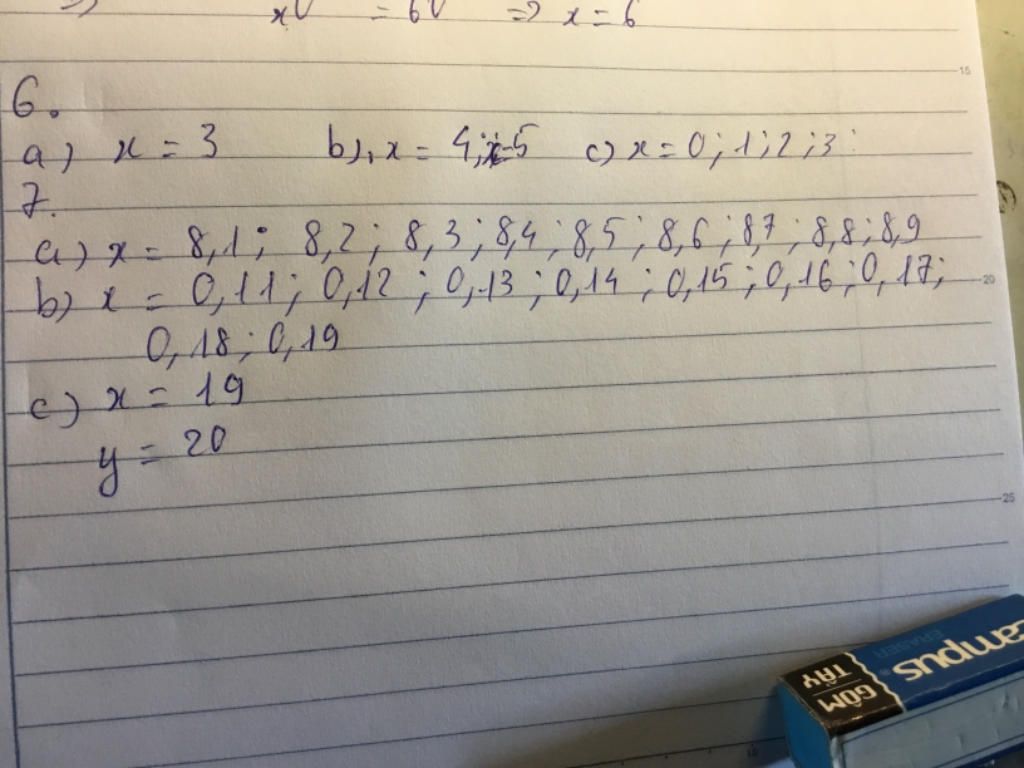 x = 60 => x = 6
15
6.
a) x = 3 b), x = 4; x=5 c) x = 0 ; 1 ; 2 ; 3
7.
a) x = 8,1 ; 8,2 ; 8,3 ; 8,4 ; 8,5 ; 8,6 ; 8,7 ; 8,8 ; 8,9
b) x = 0,11 ; 0,12 ; 0,13 ; 0,14 ; 0,15 ; 0,16 ; 0,17 ;
20
0,18 ; 0,19
c) x = 19
y = 20
25
campus
ERASER
GÔM
TẨY